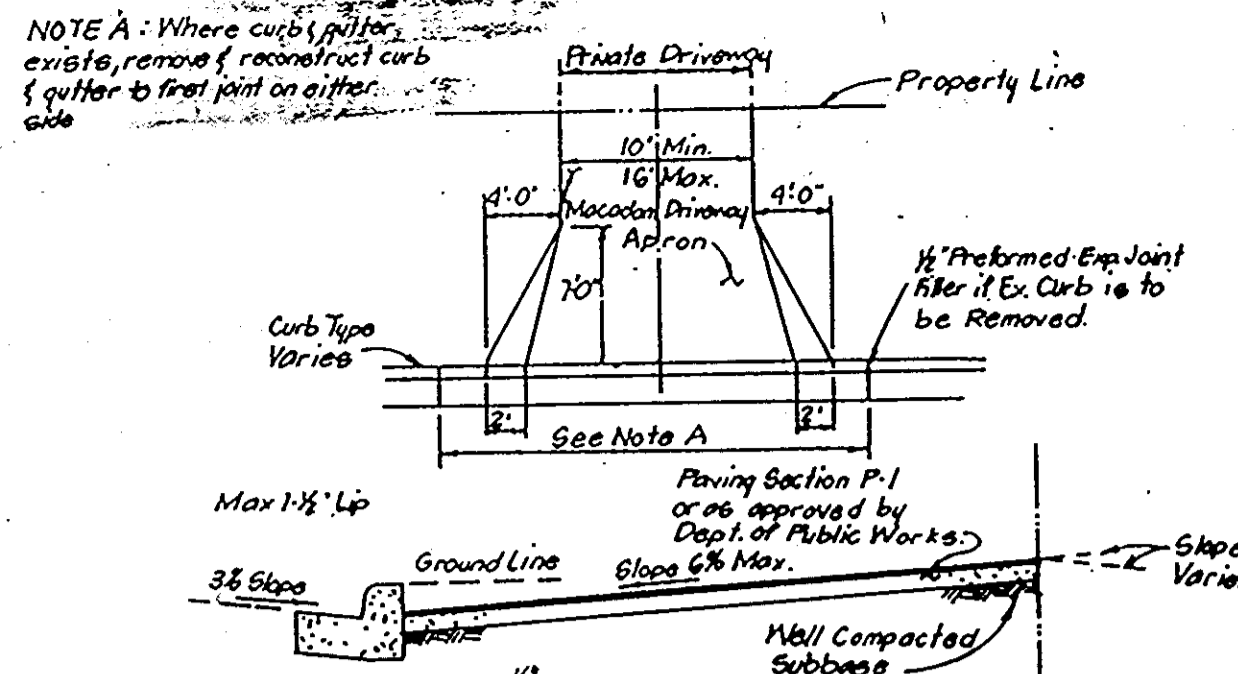 NOTE A: Where curb & gutter
exists, remove & reconstruct curb
& gutter to first joint on either
side
Private Driveway
Property Line
10' Min.
16' Max.
4'-0"
4'-0"
Macadam Driveway
Apron
7'-0"
1/2" Preformed Exp. Joint
Filler if Ex. Curb is to
be Removed.
Curb Type
Varies
2'
2'
See Note A
Max 1-1/2" Lip
Paving Section P-1
or as approved by
Dept. of Public Works.
Ground Line
Slope 6% Max.
3% Slope
Slope
Varies
Well Compacted
Subbase